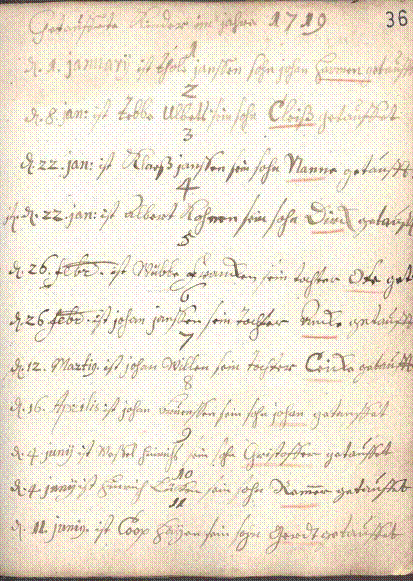 Getauffete Kinder im jahre 1719
36
1
d. 1. january ist janssen sohn johan Harmen getaufft
2
d. 8. jan: ist Tebbe Ulbets sein sohn getauffet
3
d. 22. jan: ist Klaeß janssen sein sohn Nanne getauff
4
d. 22. jan: ist Albert sein sohn Dirck getauff
5
d. 26. febr. ist Wübbe Francken sein tochter get
6
d. 26 febr. ist johan janssen sein tochter getauff
7
d. 12. Martij. ist johan Willen sein tochter getauff
8
d. 16. Aprilis ist johan sein sohn johan getauffet
9
d. 4. junij ist Wessel Hinrichs sein sohn Christoffer getauffet
10
d. 4. junij ist Hinrich sein sohn getauffet
11
d. 11. junij. ist Coop Haijen sein sohn Gerdt getauffet